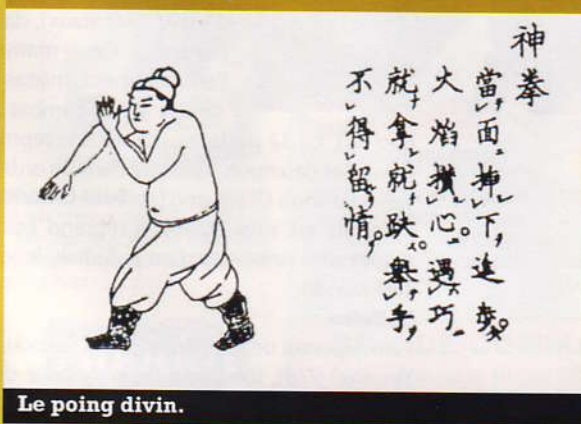 神拳
當面挿下進步
火焰攢心遇巧
就拿就跌舉手
不得留情
Le poing divin.